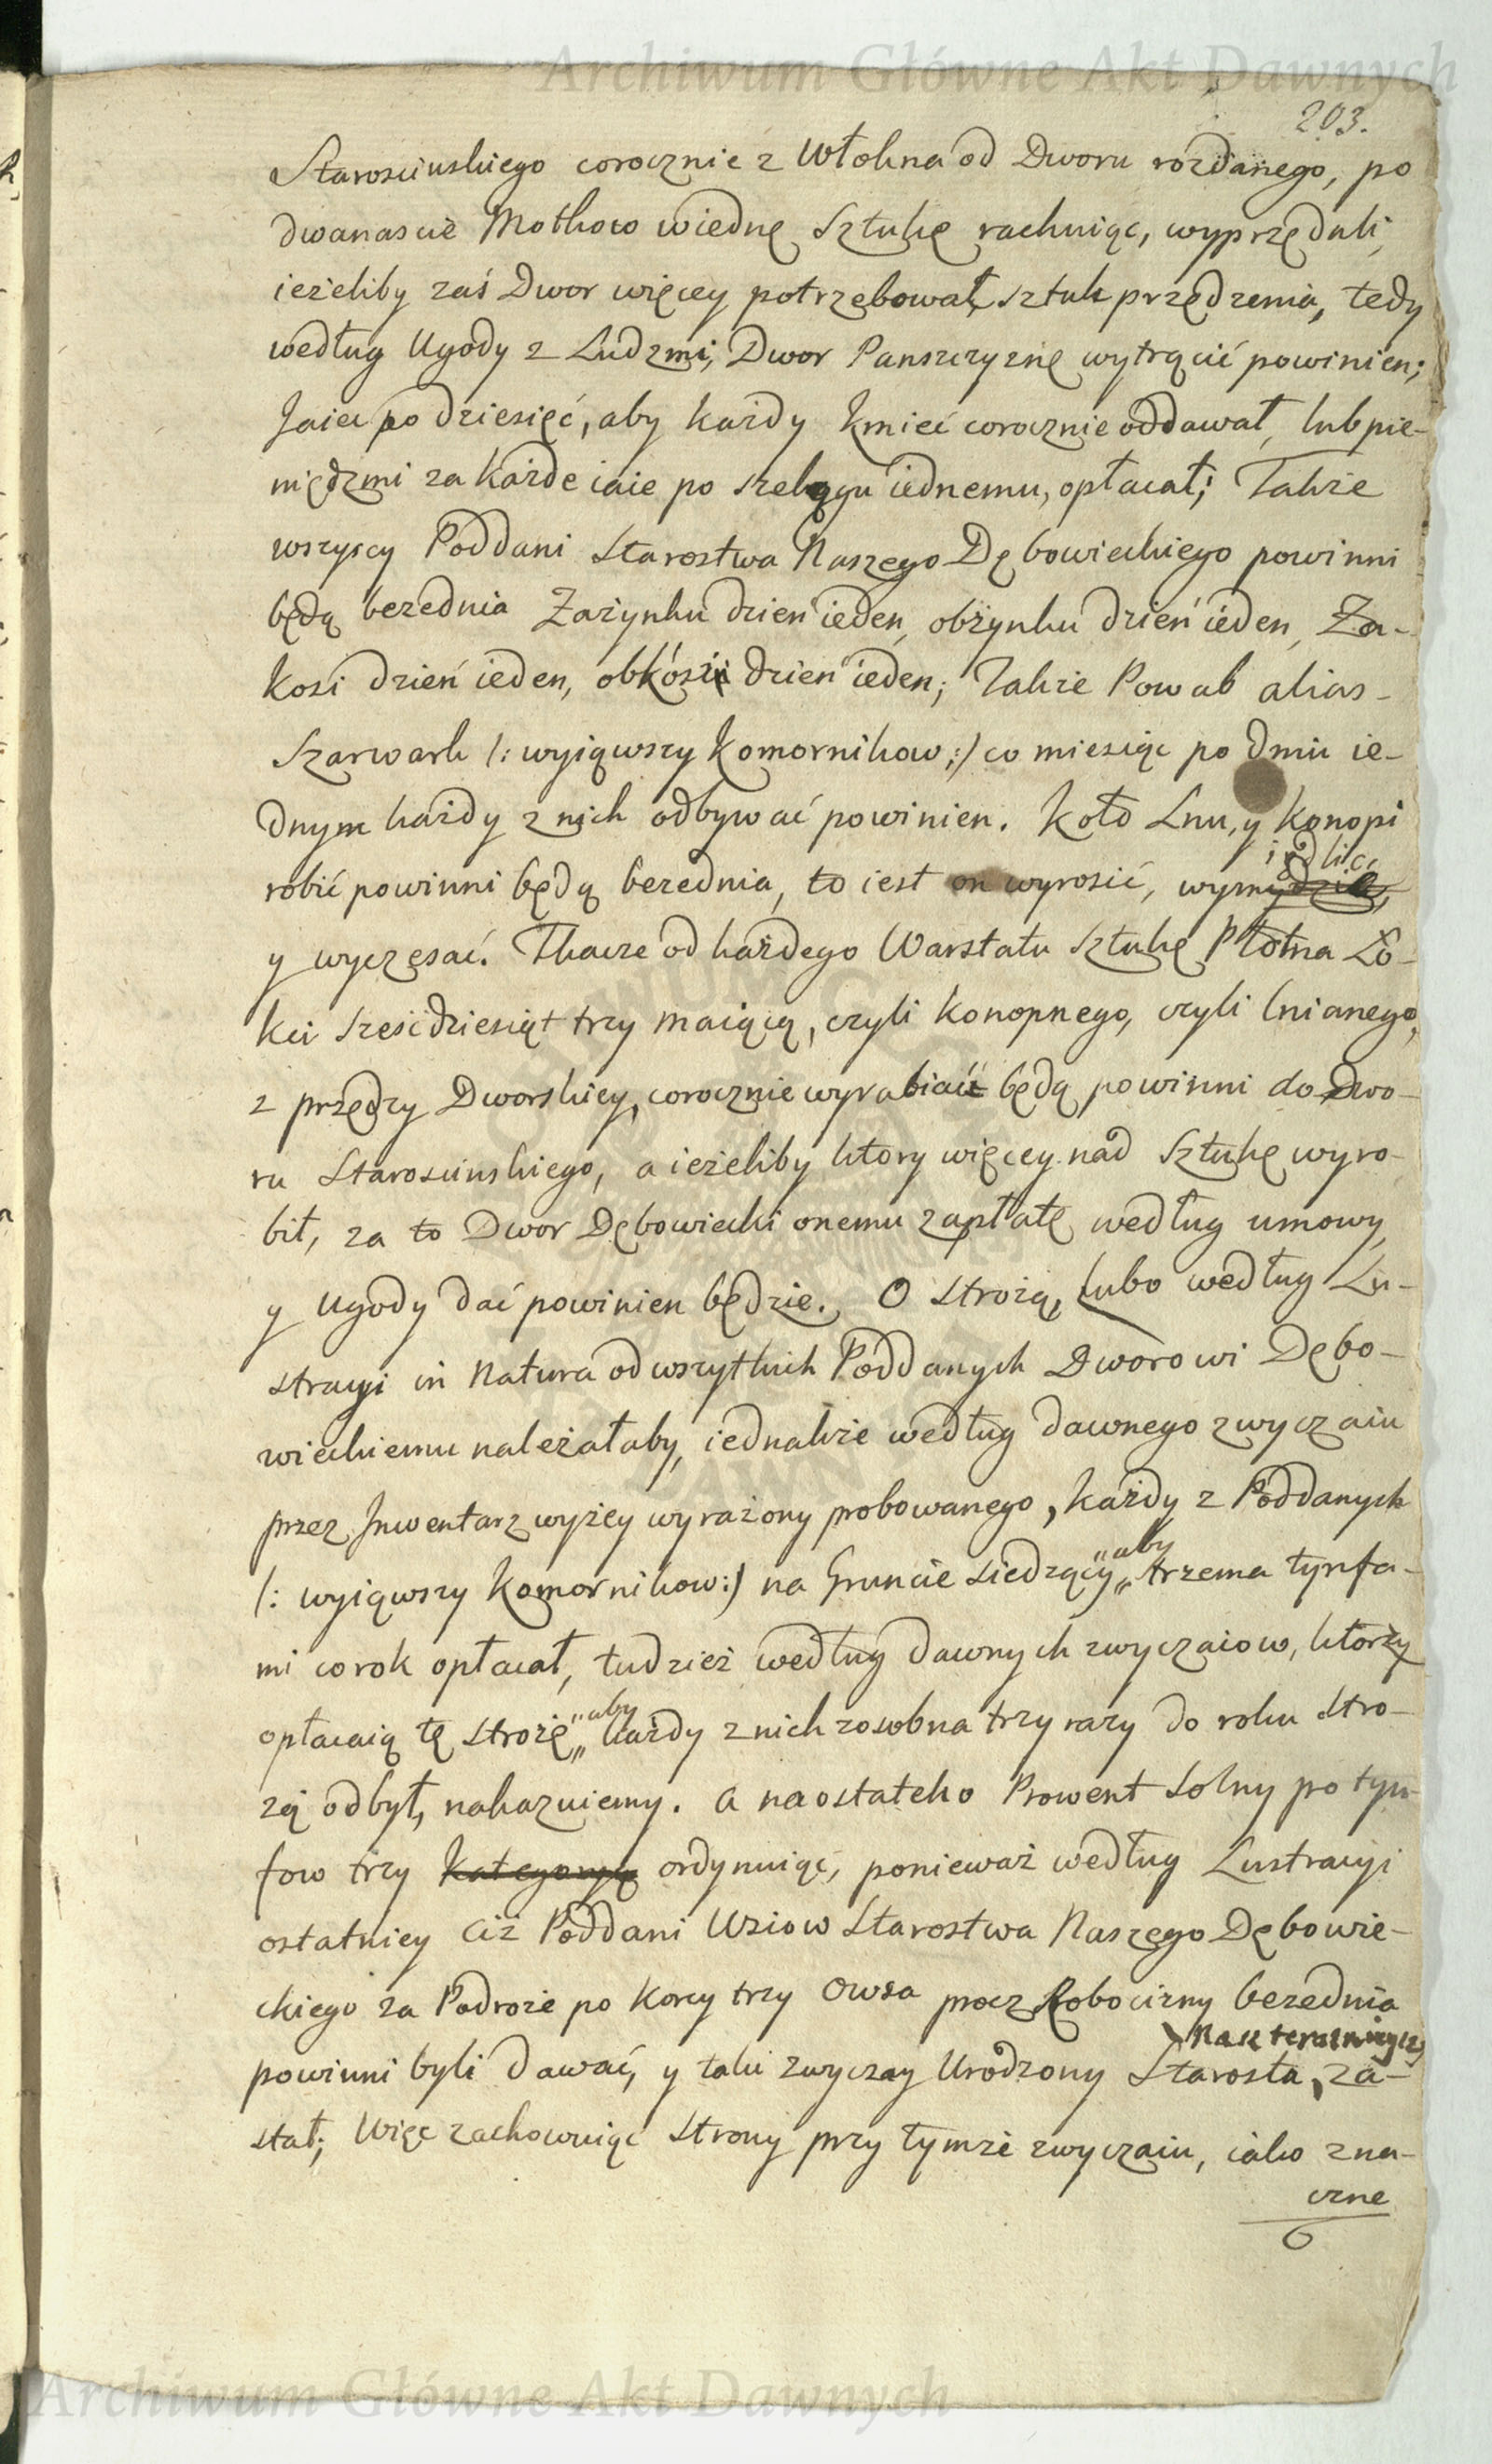 Archiwum Główne Akt Dawnych
203.
Starosciuskiego corocznie z Włokna od Dworu rozdanego, po
dwanascie Motkow wiednę Sztukę rachuiąc, wyprzęduli,
ieżeliby zaś Dwor więcey potrzebował sztuk przędzenia, tedy
według Ugody z Ludzmi, Dwor Panszczyznę wytrącić powinien;
Jaiec po dziesięć, aby każdy kmieć corocznie oddawał, lub pie-
niędzmi za każde iaie po szelągu iednemu, opłacał; Także
wszyscy Poddani Starostwa Naszego Dębowieckiego powinni
będą bezednia Zażynku dzień ieden, obżynku dzień ieden, Za-
kosi dzień ieden, obkósi dzień ieden; Także Powab alias
Szarwark /: wyiąwszy Komornikow :/ co miesiąc po dniu ie-
dnym każdy z nich odbywać powinien. Koło Lnu, y Konopi
robić powinni będą bezednia, to iest on wyrosić, wymiędlić,
y wyczesać. Tkacze od każdego Warstatu Sztukę Płotna Ło-
kci sześćdziesiąt trzy maiącą, czyli konopnego, czyli lnianego,
z przędzy Dworskiey, corocznie wyrabiać będą powinni do Dwo-
ru Starosciuskiego, a ieżeliby ktory więcey nad Sztukę wyro-
bił, za to Dwor Dębowiecki onemu zapłatę według umowy,
y Ugody dać powinien będzie. O strożą, lubo według Lu-
stracyi in Natura od wszytkich Poddanych Dworowi Dębo-
wieckiemu należałaby, iednakże według dawnego zwyczaiu
przez Inwentarz wyżey wyrażony probowanego, każdy z Poddanych
/: wyiąwszy Komornikow :/ na Gruncie siedzący „aby„ trzema tynfa-
mi corok opłacał, tudzież według dawnych zwyczaiow, ktorzy
opłacaią tę strożę „aby„ każdy z nich zosobna trzy razy do roku stro-
żą odbył, nakazuiemy. A na ostatek o Prowent Solny po tyn-
fow trzy Kategoryą ordynuiąc, ponieważ według Lustracyi
ostatniey ciż Poddani Wsiow Starostwa Naszego Dębowie-
ckiego za Podroże po korcy trzy Owsa procz Robocizny bezednia
powinni byli dawać, y taki zwyczay Urodzony Starosta, Nasz teraznieyszy za-
stał; Więc zachowuiąc strony przy tymże zwyczaiu, iako zna-
czne
Archiwum Główne Akt Dawnych